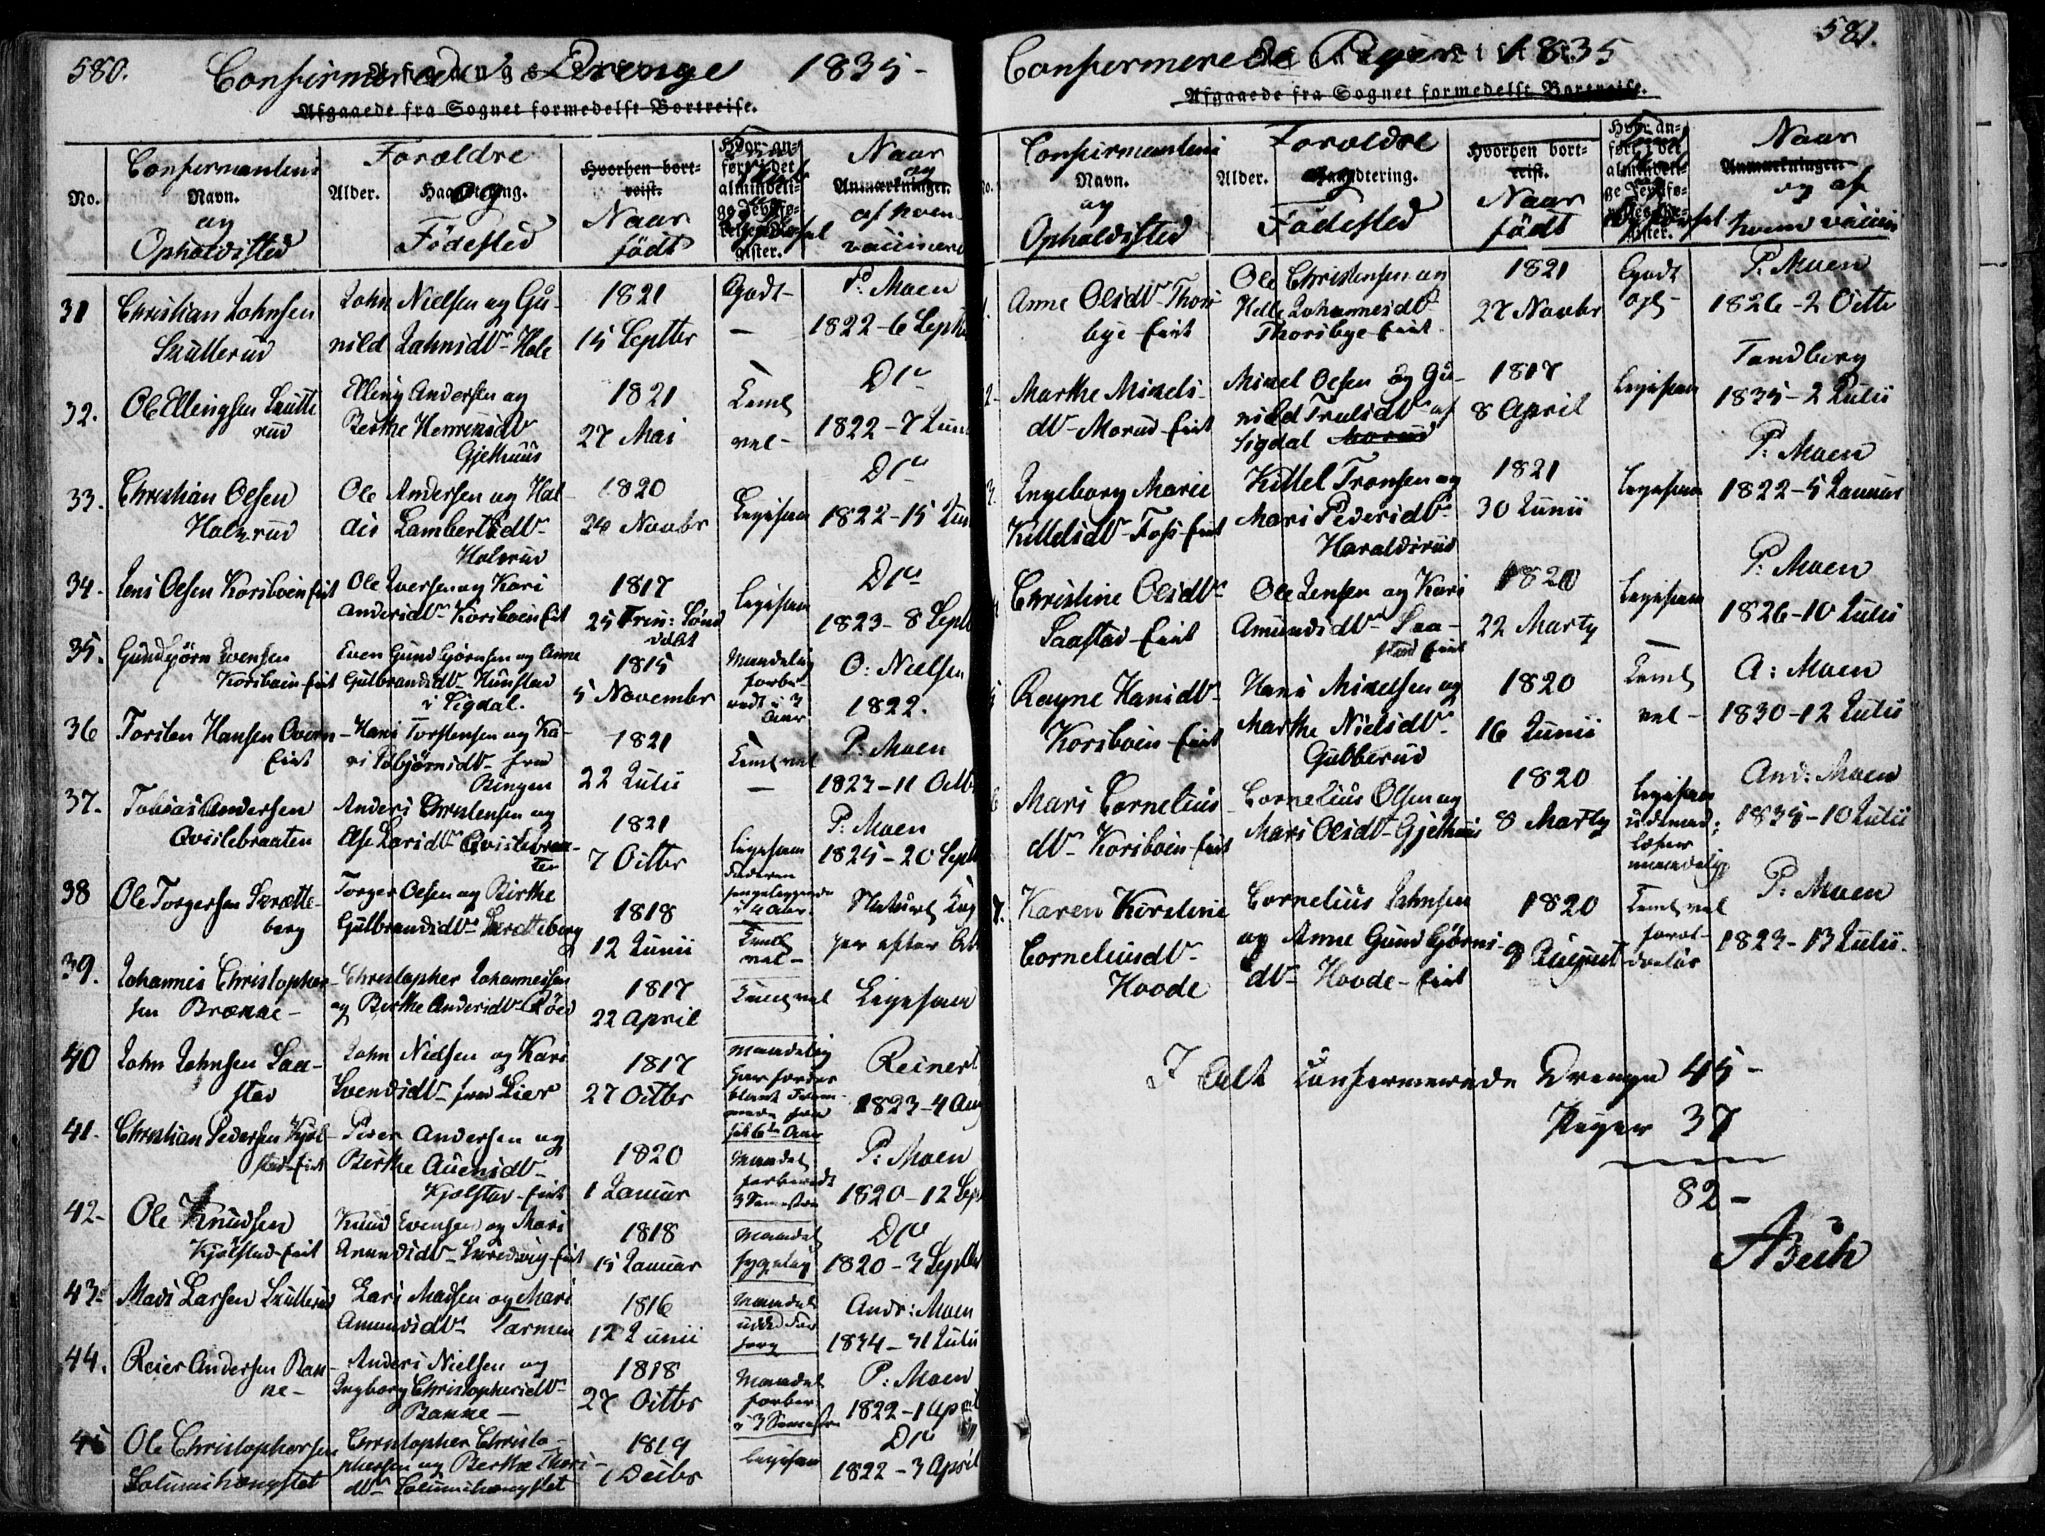 580.
Confirmerede Drenge 1835-
Afgaaede fra Sognet formedelst Bortreise.
No.
Confirmantens
Navn.
og
Opholdssted
Alder.
Forældre
og
Fødested
Hvorhen bortreist.
Naar
født
Naar
og
Anmærkninger.
af hvem
vaccinered
31
Christian Johnsen
Skutterud
John Nielsen og Gu-
nild Johnsdtr Hole
1821
15 Septbr
Godt
P: Moen
1822-6 Septb
32.
Ole Ellingsen Skutte
rud
Elling Andersen og
Berthe Henriksdtr
Gjethuus
1821
27 Mai
Teml
vel-
Dto
1822-7 Juni
33.
Christian Olsen
Ole Andersen og Hal-
dis Lambertsdtr
1820
24 Novbr
Ligesaa
Dto
1822-15 Jun
34.
Jens Olsen Korsboeneiet
Ole Iversen og Kari
Andersdtr Korsboeneiet
1817
25 Trin: Sønd
Ligesaa
Dto
1823-8 Septb
35.
Gundbjørn Evensen
Korsboen-eiet
Even Gundbjørnsen og Anne
Gulbrandsdtr Hunstad
i Sigdal.
1815
5 Novembr
Maadelig
O: Nielsen
1822.
36
Torsten Hansen Overn
eiet
Hans Torstensen og Ka-
ri Tobjørnsdtr fra
Ringen
1821
22 Julii
Teml vel
P: Moen
1823-11 Octb
37.
Tobias Andersen
Qvislebraaten
Anders Christensen og
Else Larsdtr Qvislebraa-
ten
1821
7 Octbr
Ligesaa
P: Moen
1825-20 Septb
38
Ole Torgersen Skrette
berg
Torger Olsen og Birthe
Gulbrandsdtr Skretteberg
1818
12 Junii
Teml
vel-
39.
Johannes Christopher-
sen Brænne-
Christopher Johannessen
og Birthe Andersdtr Røed
1817
22 April
Teml vel
Ligesaa
40
John Johnsen Saa-
stad
John Nielsen og Kari
Svendsdtr fra Lier
1817
27 Octbr
Maadelig
Reinert
1823-4 Aug
41.
Christian Pedersen Kjøl-
stad-eiet
Peder Andersen og
Birthe Auensdtr
Kjølstad-eiet
1820
1 Januar
Maadel
forberedt
3 Semestre
P: Moen
1820-12 Sep
42-
Ole Knudsen
Kjølstad-eiet
Knud Evensen og Mari
Amundsdtr
1818
15 Januar
Maadel
sygelig
Dto
1820-3 Septbr
43
Mads Larsen Skutterud
Lars Madsen og Mari
Amundsdtr Tarmen
1816
12 Junii
Maadel
Andr: Moen
1834-31 Julii
44.
Reier Andersen Ban-
ne-
Anders Nielsen og
Ingborg Christophersdtr
Banne-
1818
27 Octbr
Maadel
forber
i 3 Semestre
P: Moen
1822-1 April
45
Ole Christophersen
Christopher Christo-
phersen og Berthe Thors-
dtr
1819
1 Decbr
Ligesaa
Dto
1822-3 April
581.
Confirmerede Piger 1835
Afgaaede fra Sognet formedelst Bortreise.
Confirmantens
Navn.
og
Opholdssted
Alder.
Forældre
og
Fødested
Hvorhen bortreist.
Naar
født
Naar
Anmærkninger.
og af
hvem vaccin
Anne Olsdtr Thors
bye-eiet
Ole Christensen og
Helle Johannesdtr
Thorsbye-eiet
1821
27 Novbr
Godt
P. Moen
1826-2 Octb
Marthe Mikels-
dtr Morud-eiet
Mikel Olsen og Gu-
nild Trulsdtr af
Sigdal
1817
8 April
Ligesaa
Tandberg
1835-2 Julii
Ingeborg Marie
Kittelsdtr Foss-eiet
Kittel Tronsen og
Mari Pedersdtr
Haraldsrud
1821
30 Junii
Ligesaa
P: Moen
1822-5 Januar
Christine Olsdtr
Saastad-eiet
Ole Jensen og Kari
Amundsdtr Saa-
stad eiet
1820
22 Marty
Ligesaa
P: Moen
1826-10 Julii
Ragne Hansdtr
Korsboen-eiet
Hans Mikelsen og
Marthe Nielsdtr
Gubberud
1820
16 Junii
Teml
vel-
A: Moen
1830-12 Julii
6
Mari Cornelius
dtr Korsboen-eiet
Cornelius Olsen og
Mari Olsdtr Gjethuus
1820
8 Marty
Ligesaa
læser
maadelig
And: Moen
1835-10 Julii
7.
Karen Kirstine
Corneliusdtr
Hovde
Cornelius Johnsen
og Anne Gundbjørns-
dtr Hovde-eiet
1820
9 August
Teml vel
P: Moen
1823-13 Julii.
I Alt Confirmerede Drenge 45-
Piger 37
82-
ABech